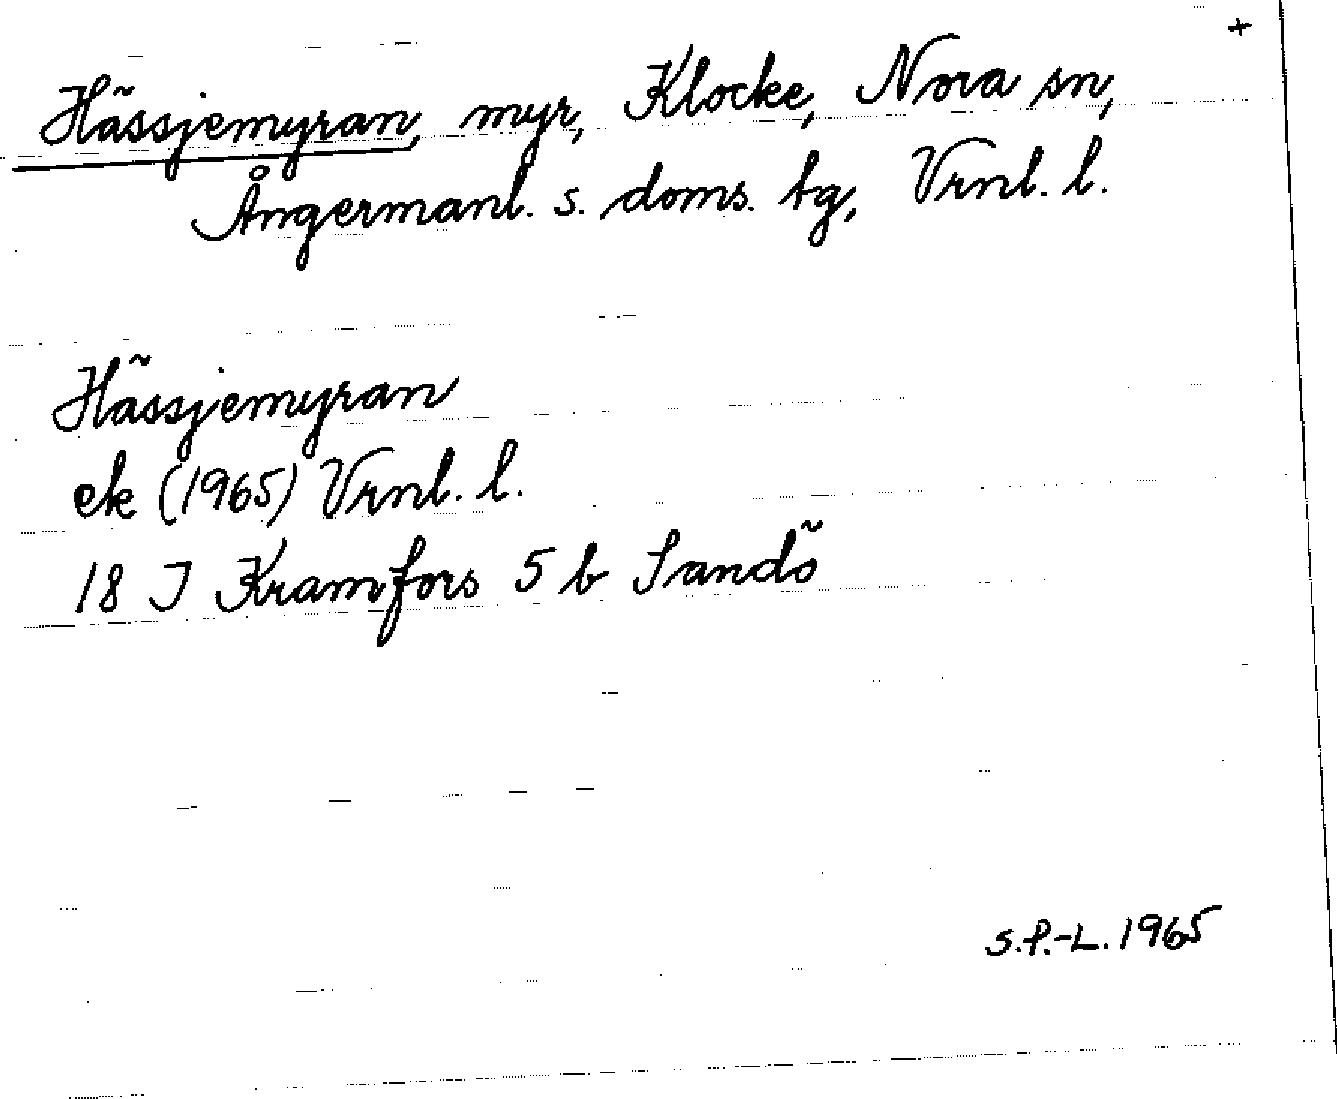 +
Hässjemyran, myr, Klocke, Nora sn,
Ångermanl. s. doms. tg, Vrnl. l.
Hässjemyran
ek (1965) Vrnl. l.
18 J Kramfors 5 b Sandö
S.P.-L. 1965